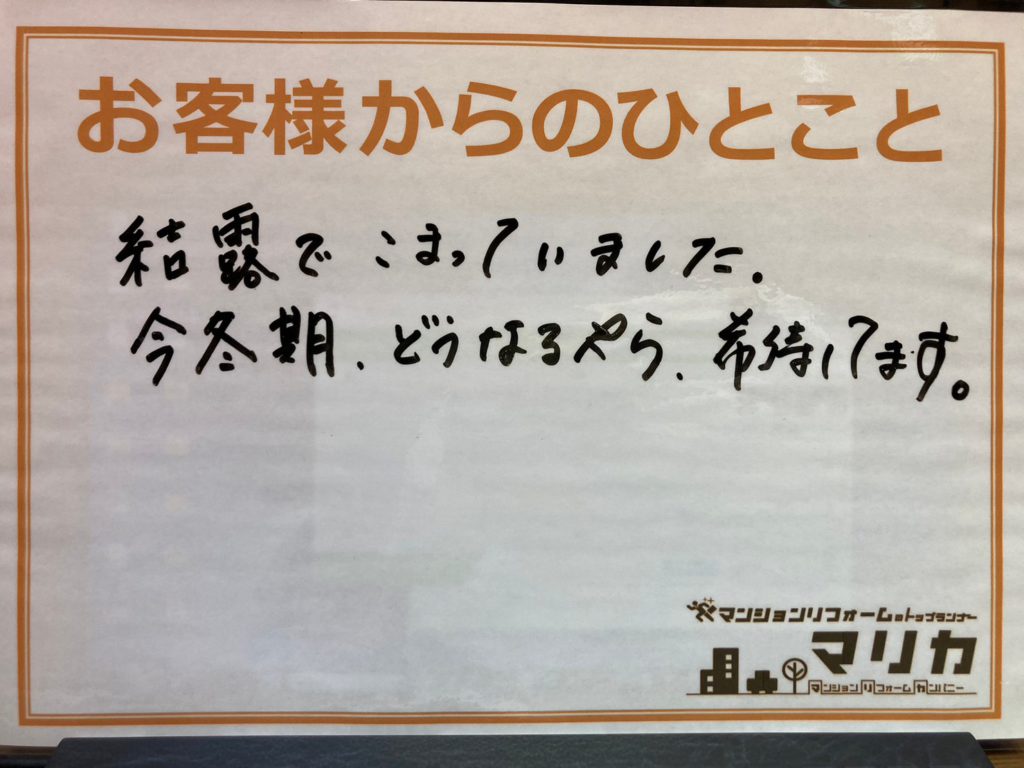 お客様からのひとこと
結露で こまっていました.
今冬期、どうなるやら、希待してます。
マンションリフォームのトップランナー
マリカ
マンションリフォームカンパニー